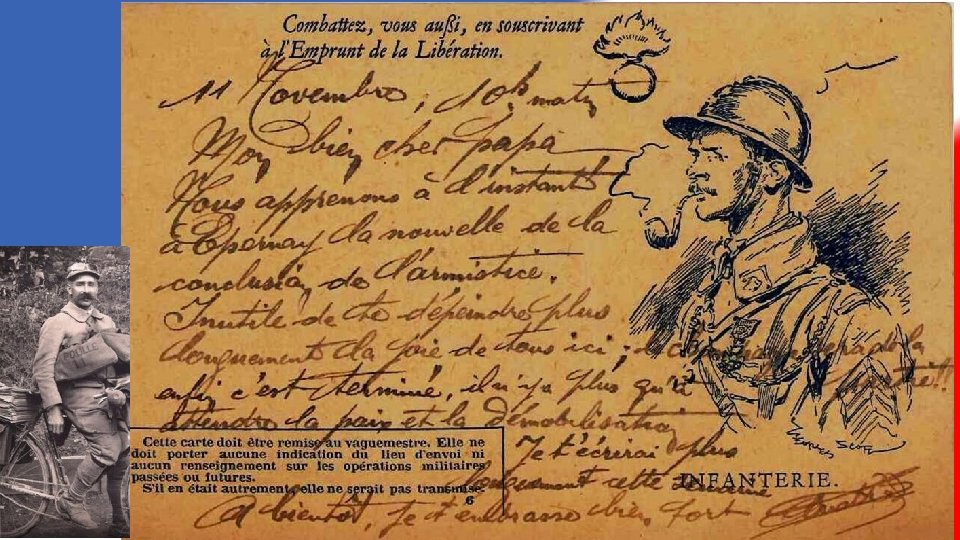 Combattez, vous außi, en souscrivant
à l'Emprunt de la Libération.
11 Novembre, 10h matin
Mon bien cher papa
Nous apprenons à l'instant
à Epernay la nouvelle de la
conclusion de l'armistice.
Inutile de te dépeindre plus
longuement la joie de tous ici ;
enfin c'est terminé, il n'y a plus qu'à
attendre la paix et la démobilisation
Je t'écrirai plus
longuement cette
A bientôt, je t'embrasse bien fort
Cette carte doit être remise au vaguemestre. Elle ne
doit porter aucune indication du lieu d'envoi ni
aucun renseignement sur les opérations militaires
passées ou futures.
S'il en était autrement elle ne serait pas transmise.
6
Georges Scott
INFANTERIE.